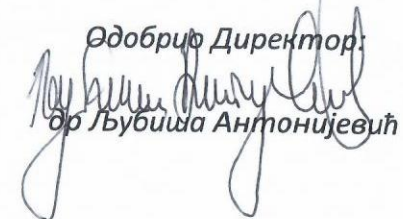 Одобрио Директор:
др Љубиша Антонијевић